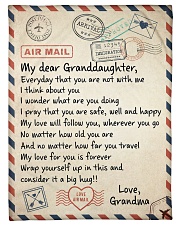 AIR MAIL
My dear Granddaughter,
Everyday that you are not with me
I think about you
I wonder what are you doing
I pray that you are safe, well and happy
My love will follow you, wherever you go
No matter how old you are
And no matter how far you travel
My love for you is forever
Wrap yourself up in this and
consider it a big hug!!
Love,
Grandma
LOVE
AIR MAIL